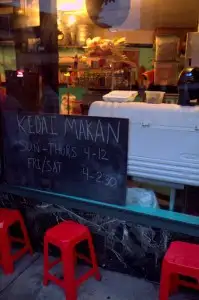 KEDAI MAKAN
SUN-THURS 4-12
FRI/SAT
4-2:30